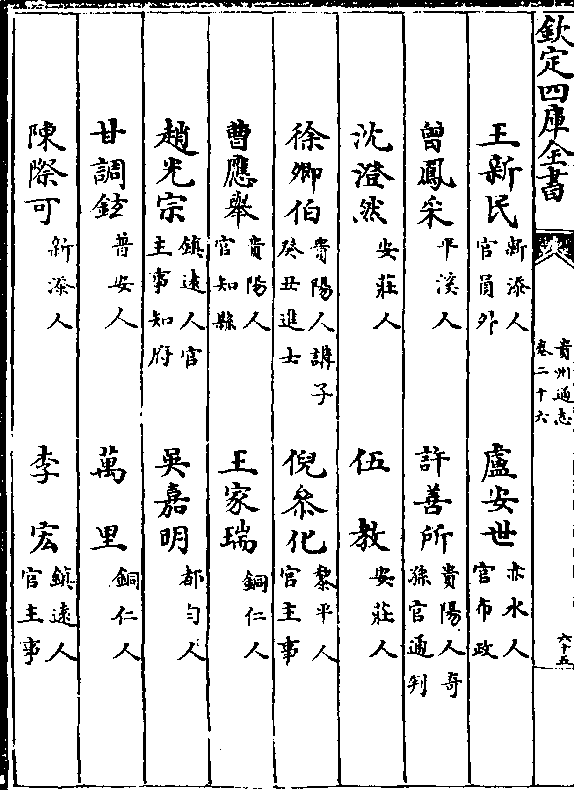 欽定四庫全書
貴州通志
卷二十六
六十五
王新民 新添人官員外 盧安世 赤水人官布政
曾鳳采 平溪人 許善所 貴陽人奇孫官通判
沈澄然 安莊人 伍教 安莊人
徐卿伯 貴陽人講子癸丑進士 倪叅化 黎平人官主事
曹應舉 貴陽人官知縣 王家瑞 銅仁人
趙光宗 鎮遠人官主事知府 吳嘉明 都勻人
甘調鉉 普安人 萬里 銅仁人
陳際可 新添人 李宏 鎮遠人官主事